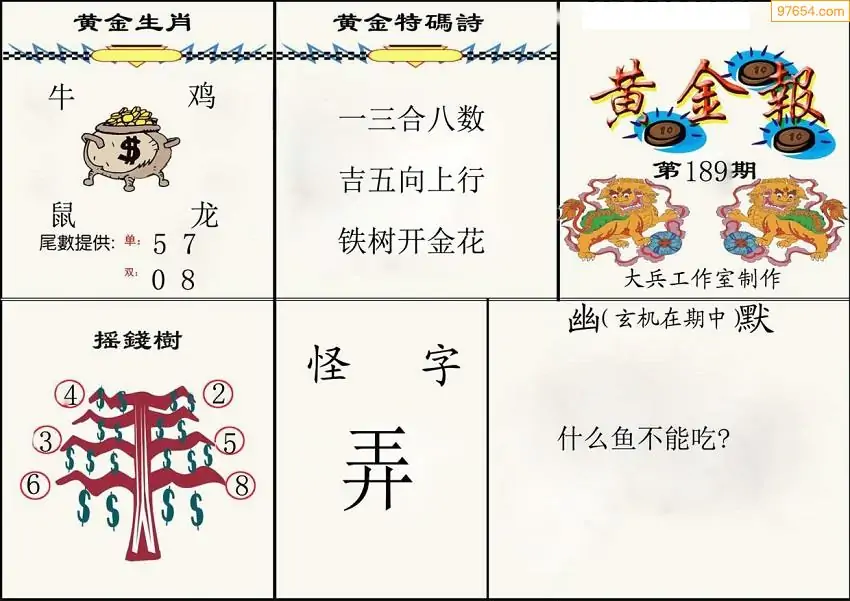 97654.com
黄金生肖
牛 鸡
$
鼠 龙
尾數提供: 单: 5 7
双: 0 8
黄金特碼詩
一三合八数
吉五向上行
铁树开金花
黄金報
10
10
10
第189期
大兵工作室制作
摇錢樹
④ ②
$ $ $ $
③ ⑤
$ $ $ $
$ $ $ $ $
⑥ ⑧
$ $ $ $
怪 字
弄
幽(玄机在期中)默
什么鱼不能吃?